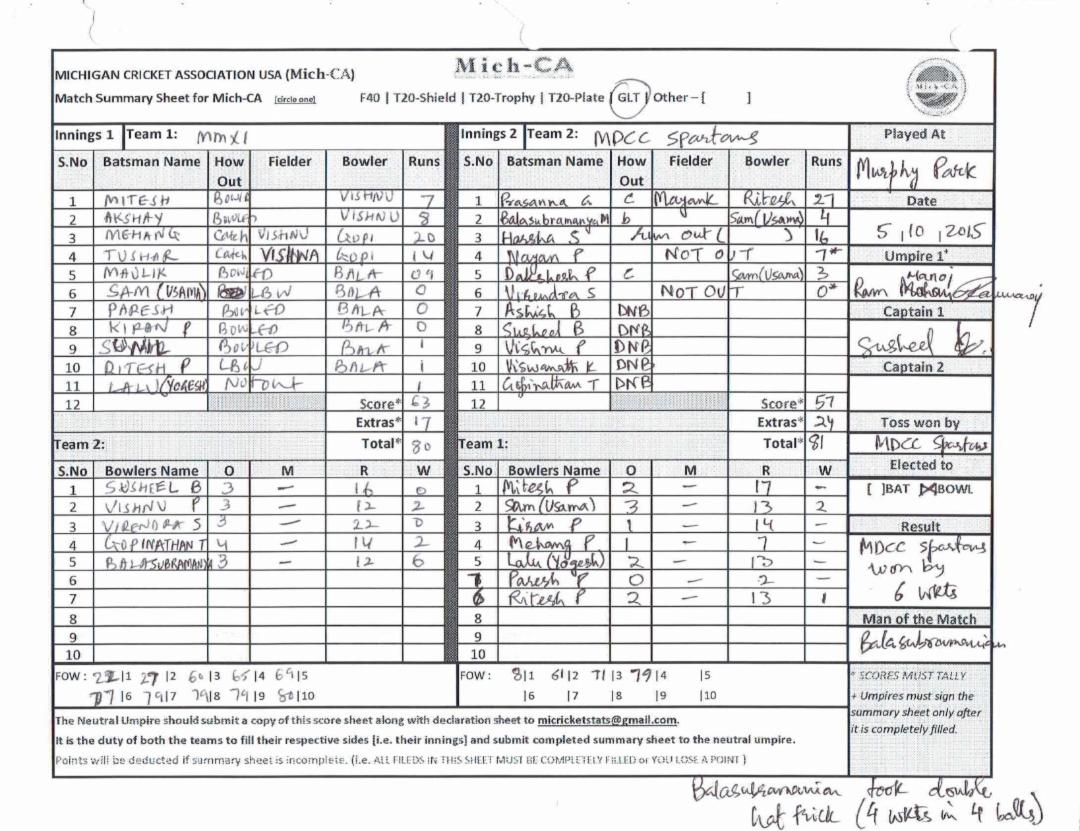 Mich-CA
MICHIGAN CRICKET ASSOCIATION USA (Mich-CA)
Match Summary Sheet for Mich-CA (circle one) F40 | T20-Shield | T20-Trophy | T20-Plate | GLT | Other – [ ]
Innings 1 Team 1: MMXI
S.No Batsman Name How Out Fielder Bowler Runs
1 MITESH BOWLD VISHNU 7
2 AKSHAY BOWLED VISHNU 8
3 MEHANG Catch VISHNU GOPI 20
4 TUSHAR Catch VISHNNA GOPI 14
5 MAULIK BOWLED BALA 09
6 SAM (USAMA) LBW BALA 0
7 PARESH BOWLED BALA 0
8 KIRAN P BOWLED BALA 0
9 BOWLED BALA 1
10 RITESH P LBW BALA 1
11 LALU (YOGESH) NOTOUT 1
12 Score* 63
Extras* 17
Team 2: Total* 80
S.No Bowlers Name O M R W
1 SUSHEEL B 3 – 16 0
2 VISHNU P 3 – 12 2
3 VIRENDRA S 3 – 22 0
4 GOPINATHAN T 4 – 14 2
5 BALASUBRAMANYA 3 – 12 6
6
7
8
9
10
FOW: 22|1 27|2 60|3 65|4 69|5
77|6 79|7 79|8 79|9 80|10
Innings 2 Team 2: MDCC Spartans
S.No Batsman Name How Out Fielder Bowler Runs
1 Prasanna G c Mayank Ritesh 27
2 Balasubramanya M b Sam (Usama) 4
3 Harsha S Run out ( ) 16
4 Nayan P NOT OUT 7*
5 Dakshesh P c Sam (Usama) 3
6 Virendra S NOT OUT 0*
7 Ashish B DNB
8 Susheel B DNB
9 Vishnu P DNB
10 Viswanath K DNB
11 Gopinathan T DNB
12 Score* 57
Extras* 24
Team 1: Total* 81
S.No Bowlers Name O M R W
1 Mitesh P 2 – 17 –
2 Sam (Usama) 3 – 13 2
3 Kiran P 1 – 14 –
4 Mehang P 1 – 7 –
5 Lalu (Yogesh) 2 – 13 –
7 Paresh P 0 – 2 –
6 Ritesh P 2 – 13 1
8
9
10
FOW: 8|1 61|2 71|3 79|4 |5
|6 |7 |8 |9 |10
Played At
Murphy Park
Date
5 , 10 , 2015
Umpire 1+
Manoj
Ram Mohan
Captain 1
Susheel B.
Captain 2
Toss won by
MDCC Spartans
Elected to
[ ]BAT [X]BOWL
Result
MDCC Spartans
won by
6 wkts
Man of the Match
Balasubramanian
* SCORES MUST TALLY
+ Umpires must sign the
summary sheet only after
it is completely filled.
The Neutral Umpire should submit a copy of this score sheet along with declaration sheet to micricketstats@gmail.com.
It is the duty of both the teams to fill their respective sides [i.e. their innings] and submit completed summary sheet to the neutral umpire.
Points will be deducted if summary sheet is incomplete. (i.e. ALL FILEDS IN THIS SHEET MUST BE COMPLETELY FILLED or YOU LOSE A POINT )
Balasubramanian took double
hat trick (4 wkts in 4 balls)